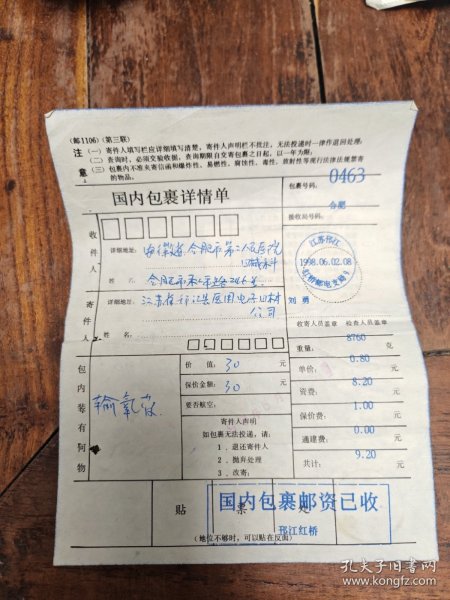 (邮1106)(第三联)
注意
(一)寄件人填写栏应详细填写清楚,寄件人声明栏不批注,无法投递时一律作退回处理;
(二)查询时,必须交验收据,查询期限自交寄包裹之日起,以一年为限;
(三)包裹内不准夹寄信函和爆炸性、易燃性、腐蚀性、毒性、放射性等现行法律法规禁寄的物品。
国内包裹详情单
包裹号码:
0463
合肥
接收局号码:
收件人
详细地址:
安徽省合肥市第二人民医院
器械科
姓名:
合肥市
寄件人
详细地址:
江苏省邗江县医用电子器材
公司
姓名:
江苏邗江
1998.06.02.08
红桥邮电支局
刘勇
收寄人员盖章
检查人员盖章
包内装有何物
输氧
价值:30元
保价金额:30元
要否航空:
寄件人声明
如包裹无法投递,请:
1.退还寄件人
2.抛弃处理
3.改寄:
重量:8760克
单价:0.80元
资费:8.20元
保价费:1.00元
通建费:0.00元
共计:9.20元
贴票处
国内包裹邮资已收
邗江红桥
(地位不够时,可以贴在反面)
孔夫子旧书网
www.kongfz.com